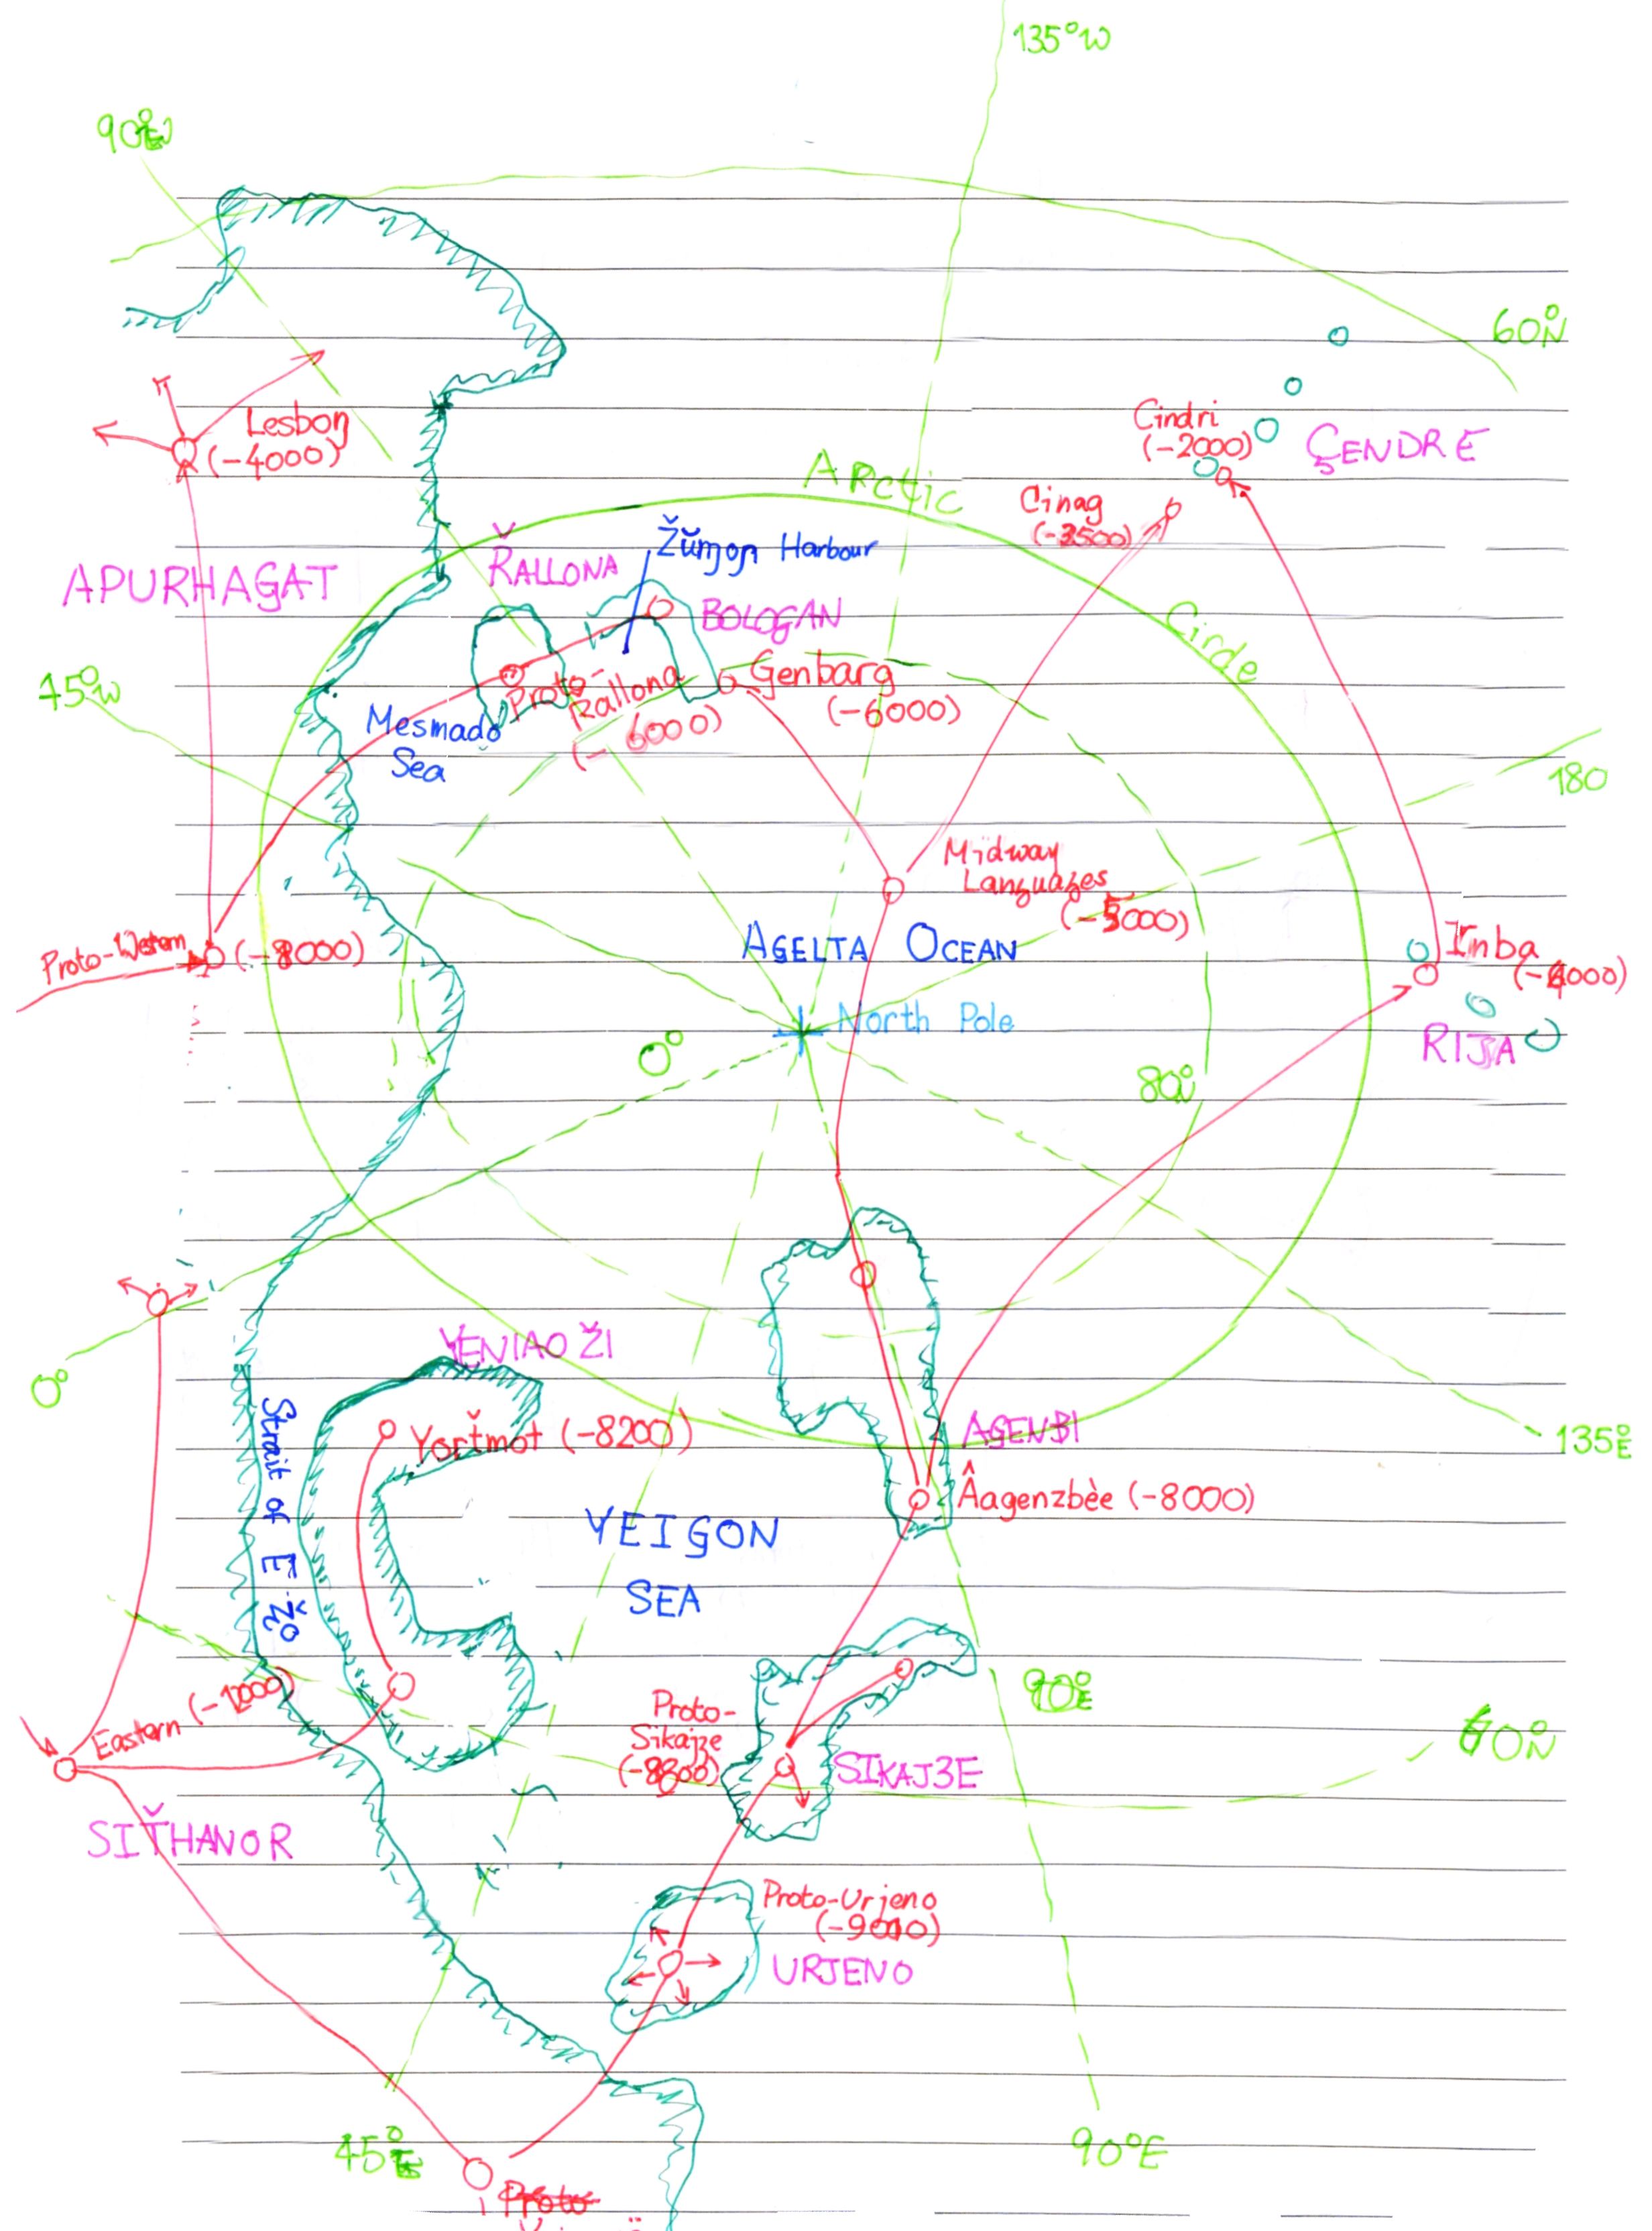 135°W
90°W
60°N
Lesbon
(-4000)
Cindri
(-2000)
ÇENDRE
ARctic
Cinag
(-3500)
Žŭmon Harbour
ŘALLONA
APURHAGAT
BOLOGAN
Circle
45°W
Genbarg
(-6000)
Proto-
Rallona
(-6000)
Mesmado
Sea
180
Midway
Languages
(-5000)
Proto-Western
(-8000)
AGELTA OCEAN
Imba
(-4000)
North Pole
RIJA
0°
80°N
VENIAOŽI
0°
Yořtmot (-8200)
AGENBI
135°E
Âagenzbèe (-8000)
Strait of E-Žo
YEIGON
SEA
90°E
Eastern
Proto-
Sikajze
(-8800)
SIKAJ3E
60°N
SIŤHANOR
Proto-Urjeno
(-9000)
URJENO
45°E
90°E
Proto